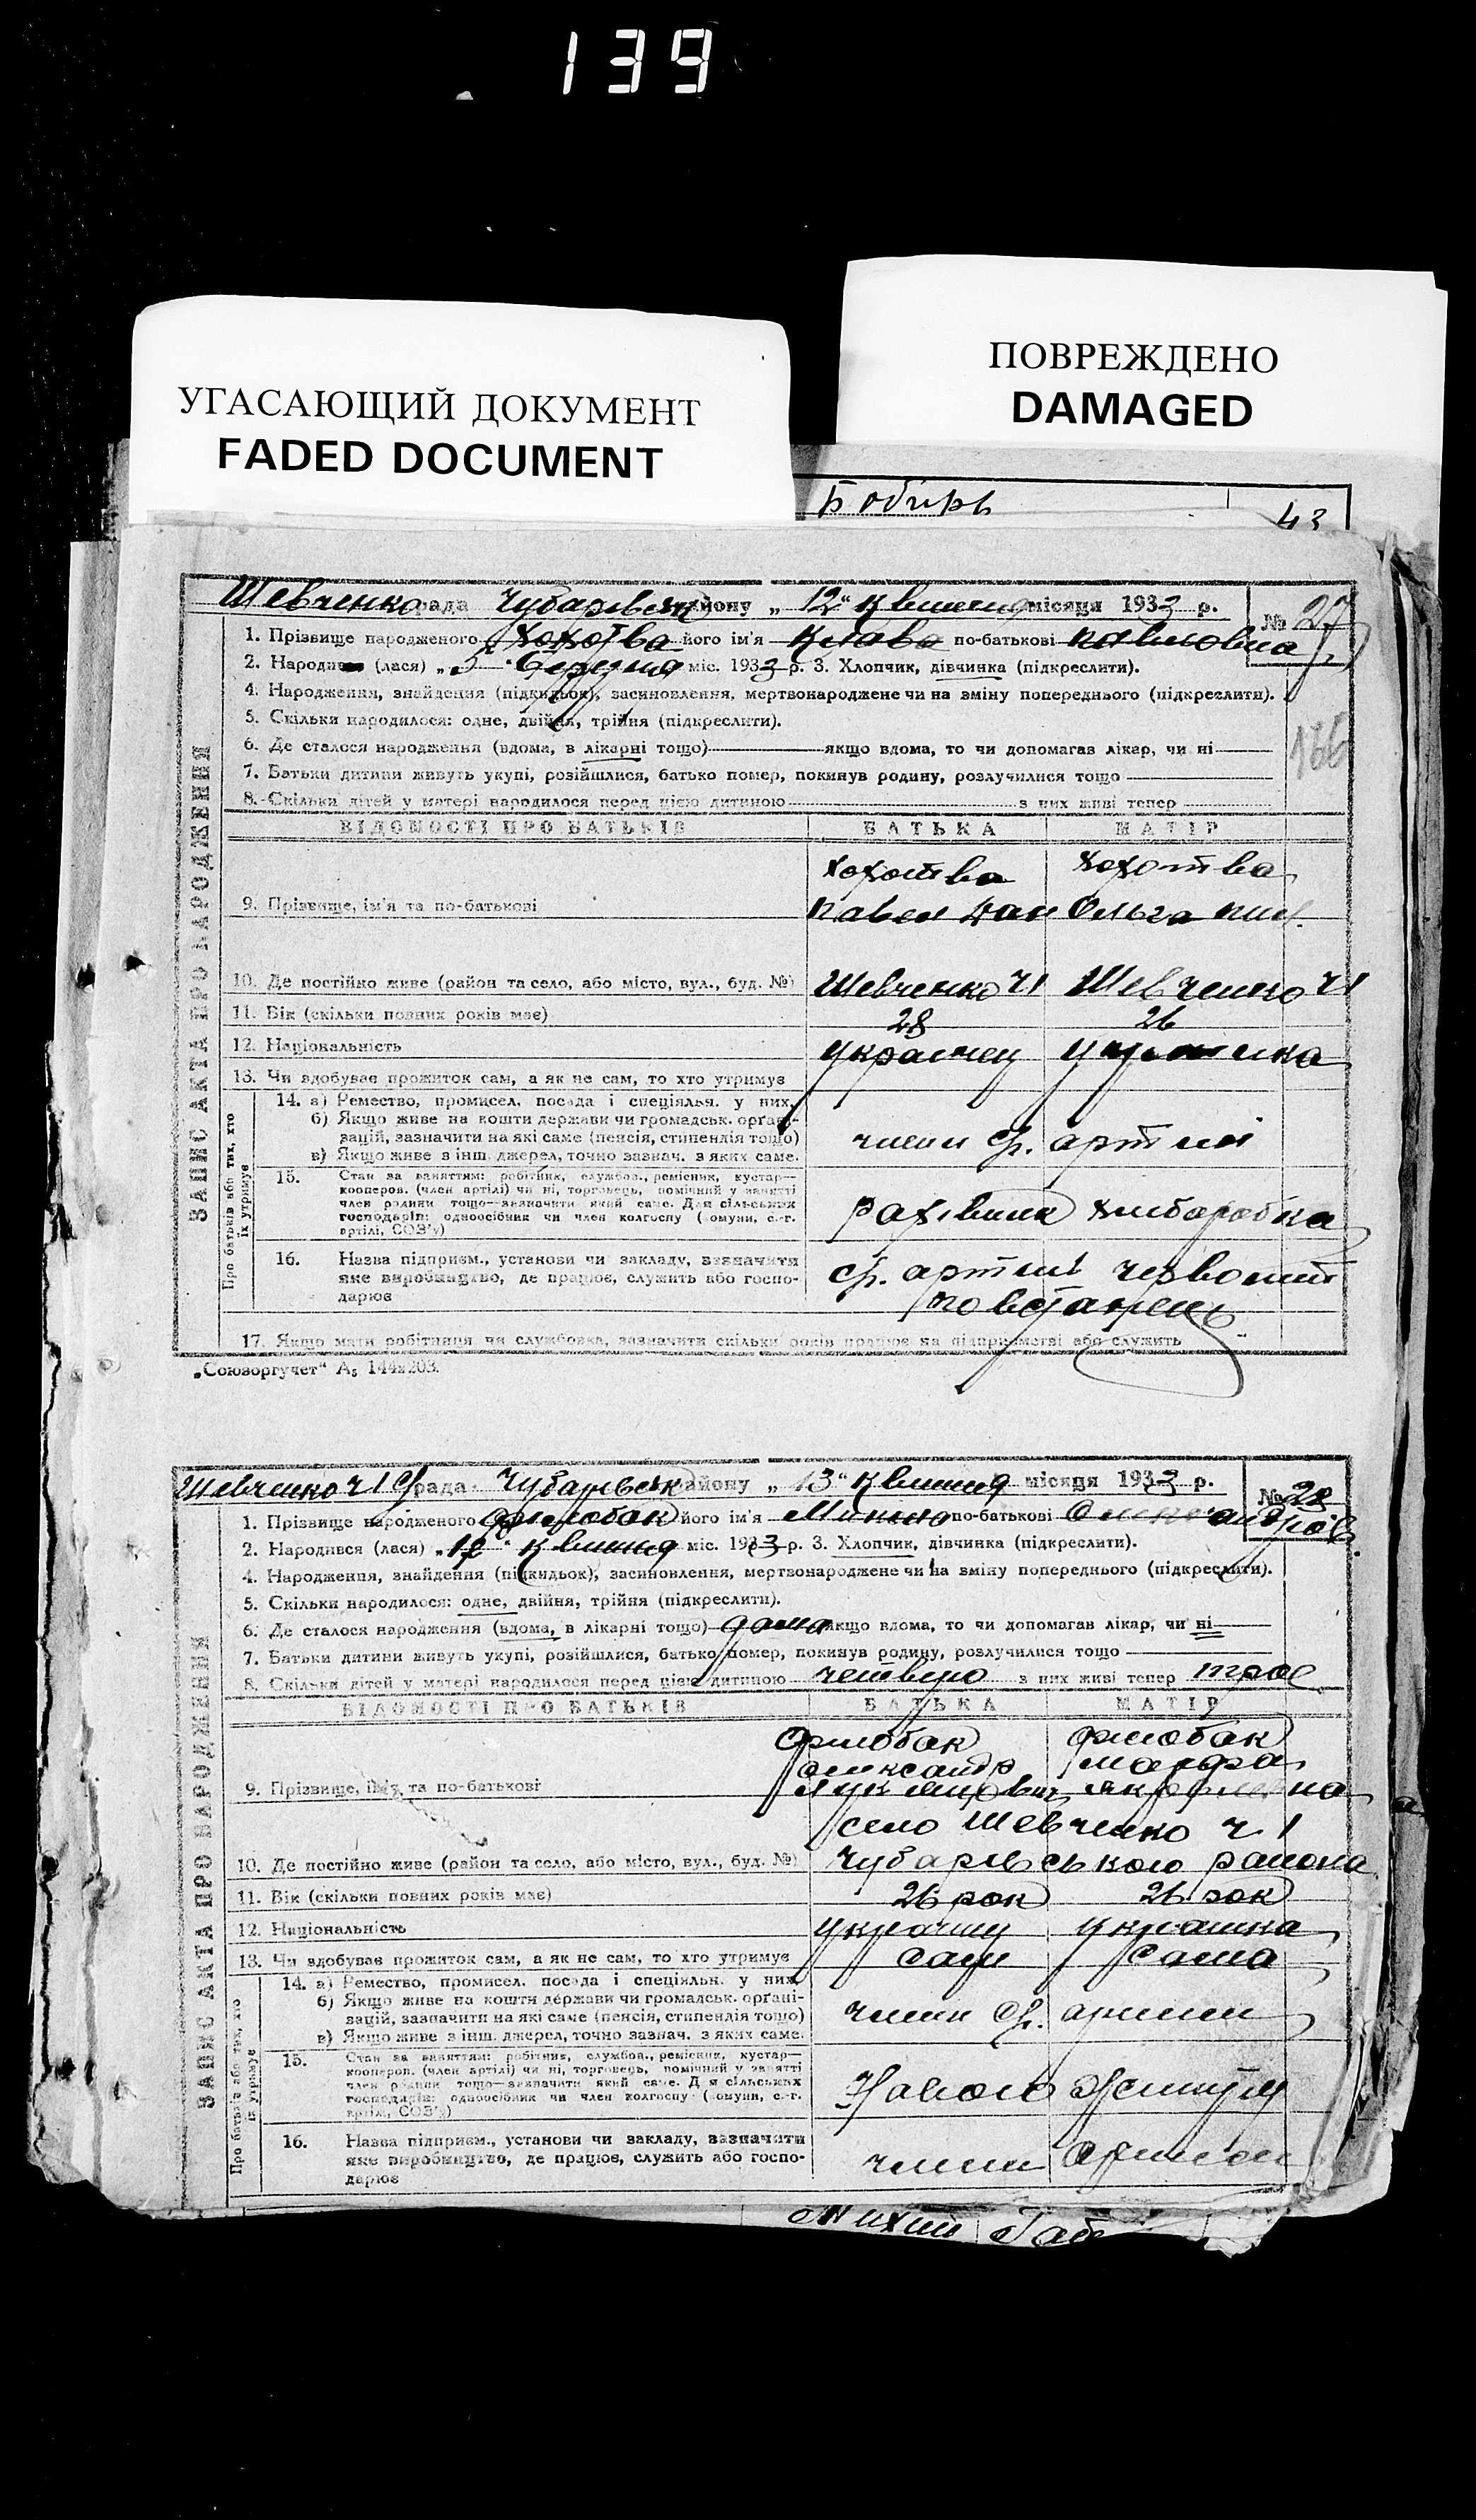 139
УГАСАЮЩИЙ ДОКУМЕНТ
FADED DOCUMENT
ПОВРЕЖДЕНО
DAMAGED
Бобирь 43
Шевченко рада Чубарівськ району „12“ квитня місяця 1933 р. № 27
1. Прізвище народженого Хохотва його ім'я Клава по-батькові Павловна
2. Народи (лася) „5“ Березня міс. 1933 р. 3. Хлопчик, дівчинка (підкреслити).
4. Народження, знайдення (підкидьок), засиновлення, мертвонароджене чи на зміну попереднього (підкреслити).
5. Скільки народилося: одне, двійня, трійня (підкреслити).
6. Де сталося народження (вдома, в лікарні тощо) якщо вдома, то чи допомагав лікар, чи ні
7. Батьки дитини живуть укупі, розійшлися, батько помер, покинув родину, розлучилися тощо
8. Скільки дітей у матері народилося перед цією дитиною з них живі тепер
ЗАПИС АКТА ПРО НАРОДЖЕННЯ
ВІДОМОСТІ ПРО БАТЬКІВ БАТЬКА МАТІР
Хохотва Хохотва
9. Прізвище, ім'я та по-батькові Павел Дан Ольга
10. Де постійно живе (район та село, або місто, вул., буд. №) Шевченко Ч1 Шевченко Ч1
11. Вік (скільки повних років має) 28 26
12. Національність Украінец Украінка
13. Чи здобуває прожиток сам, а як не сам, то хто утримує
Про батьків або тих, хто їх утримує
14. а) Ремество, промисел, посада і спеціяльн. у них.
б) Якщо живе на кошти держави чи громадськ. організацій, зазначити на які саме (пенсія, стипендія тощо)
в) Якщо живе з інш. джерел, точно зазнач. з яких саме.
член с/г. артілі
15. Стан за заняттям: робітник, службов., ремісник, кустар—
кооперов. (член артілі) чи ні, торговець, помічний у занятті
член родини тощо—зазначити який саме. Для сільських
господарів: одноосібник чи член колгоспу (комуни, с.-г.
артілі, СОЗ'у)
Рахівник хліборобка
16. Назва підприєм., установи чи закладу, зазначити
яке виробництво, де працює, служить або господарює
с/г. артілі червоний
повстанець
17. Якщо мати робітниця чи службовка, зазначити скільки років працює на підприємстві або служить
„Союзоргучет“ А5 144х203.
Шевченко ч 1 с/рада Чубарівськ району „13“ квитня місяця 1933 р. № 28
1. Прізвище народженого його ім'я Микола по-батькові
2. Народився (лася) „12“ квитня міс. 1933 р. 3. Хлопчик, дівчинка (підкреслити).
4. Народження, знайдення (підкидьок), засиновлення, мертвонароджене чи на зміну попереднього (підкреслити).
5. Скільки народилося: одне, двійня, трійня (підкреслити).
6. Де сталося народження (вдома, в лікарні тощо) дома якщо вдома, то чи допомагав лікар, чи ні
7. Батьки дитини живуть укупі, розійшлися, батько помер, покинув родину, розлучилися тощо
8. Скільки дітей у матері народилося перед цією дитиною четверо з них живі тепер трое
ЗАПИС АКТА ПРО НАРОДЖЕННЯ
ВІДОМОСТІ ПРО БАТЬКІВ БАТЬКА МАТІР
Олександр Марфа
9. Прізвище, ім'я та по-батькові
село Шевченко ч 1
10. Де постійно живе (район та село, або місто, вул., буд. №) Чубарівського района
11. Вік (скільки повних років має) 26 рок 26 рок
12. Національність Українец Українка
13. Чи здобуває прожиток сам, а як не сам, то хто утримує сам сама
Про батьків або тих, хто їх утримує
14. а) Ремество, промисел, посада і спеціяльн. у них.
б) Якщо живе на кошти держави чи громадськ. організацій, зазначити на які саме (пенсія, стипендія тощо)
в) Якщо живе з інш. джерел, точно зазнач. з яких саме.
член с/г. артили
15. Стан за заняттям: робітник, службов., ремісник, кустар—
кооперов. (член артілі) чи ні, торговець, помічний у занятті
член родини тощо—зазначити який саме. Для сільських
господарів: одноосібник чи член колгоспу (комуни, с.-г.
артілі, СОЗ'у)
16. Назва підприєм., установи чи закладу, зазначити
яке виробництво, де працює, служить або господарює
члени